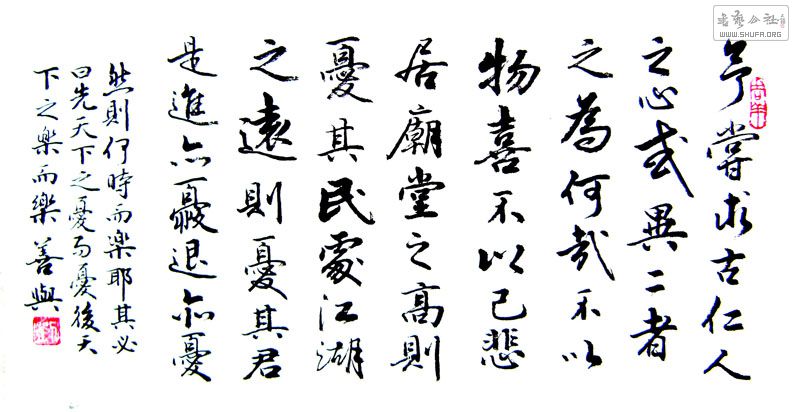 予嘗求古仁人
之心或異二者
之為何哉不以
物喜不以己悲
居廟堂之高則
憂其民處江湖
之遠則憂其君
是進亦憂退亦憂
然則何時而樂耶其必
曰先天下之憂而憂後天
下之樂而樂 善與
書藝公社
WWW.SHUFA.ORG